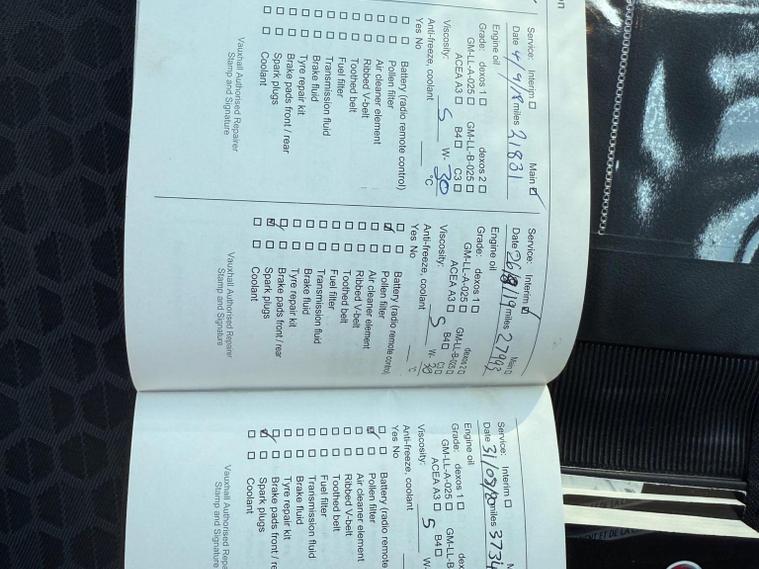 Service: Interim ☐ Main ☑
Date 4/9/18 miles 21831
Engine oil
Grade: dexos 1 ☐ dexos 2 ☐
GM-LL-A-025 ☐ GM-LL-B-025 ☐
ACEA A3 ☐ B4 ☐ C3 ☐
Viscosity: 5 W- 30
Anti-freeze, coolant °C
Yes No
☐ ☐ Battery (radio remote control)
☐ ☐ Pollen filter
☐ ☐ Air cleaner element
☐ ☐ Ribbed V-belt
☐ ☐ Toothed belt
☐ ☐ Fuel filter
☐ ☐ Transmission fluid
☐ ☐ Brake fluid
☐ ☐ Tyre repair kit
☐ ☐ Brake pads front / rear
☐ ☐ Spark plugs
☐ ☐ Coolant
Vauxhall Authorised Repairer
Stamp and Signature
Service: Interim ☑ Main ☐
Date 26/8/19 miles 27993
Engine oil
Grade: dexos 1 ☐ dexos 2 ☐
GM-LL-A-025 ☐ GM-LL-B-025 ☐
ACEA A3 ☐ B4 ☐ C3 ☐
Viscosity: 5 W- 30
Anti-freeze, coolant °C
Yes No
☐ ☐ Battery (radio remote control)
☑ ☐ Pollen filter
☐ ☐ Air cleaner element
☐ ☐ Ribbed V-belt
☐ ☐ Toothed belt
☐ ☐ Fuel filter
☐ ☐ Transmission fluid
☐ ☐ Brake fluid
☐ ☐ Tyre repair kit
☐ ☐ Brake pads front / rear
☑ ☐ Spark plugs
☐ ☐ Coolant
Vauxhall Authorised Repairer
Stamp and Signature
Service: Interim ☐ M
Date 31/03/ miles 3734
Engine oil
Grade: dexos 1 ☐ dex
GM-LL-A-025 ☐ GM-LL-B
ACEA A3 ☐ B4 ☐
Viscosity: 5 W-
Anti-freeze, coolant
Yes No
☐ ☐ Battery (radio remote
☑ ☐ Pollen filter
☐ ☐ Air cleaner element
☐ ☐ Ribbed V-belt
☐ ☐ Toothed belt
☐ ☐ Fuel filter
☐ ☐ Transmission fluid
☐ ☐ Brake fluid
☐ ☐ Tyre repair kit
☐ ☐ Brake pads front / re
☑ ☐ Spark plugs
☐ ☐ Coolant
Vauxhall Authorised Repa
Stamp and Signature